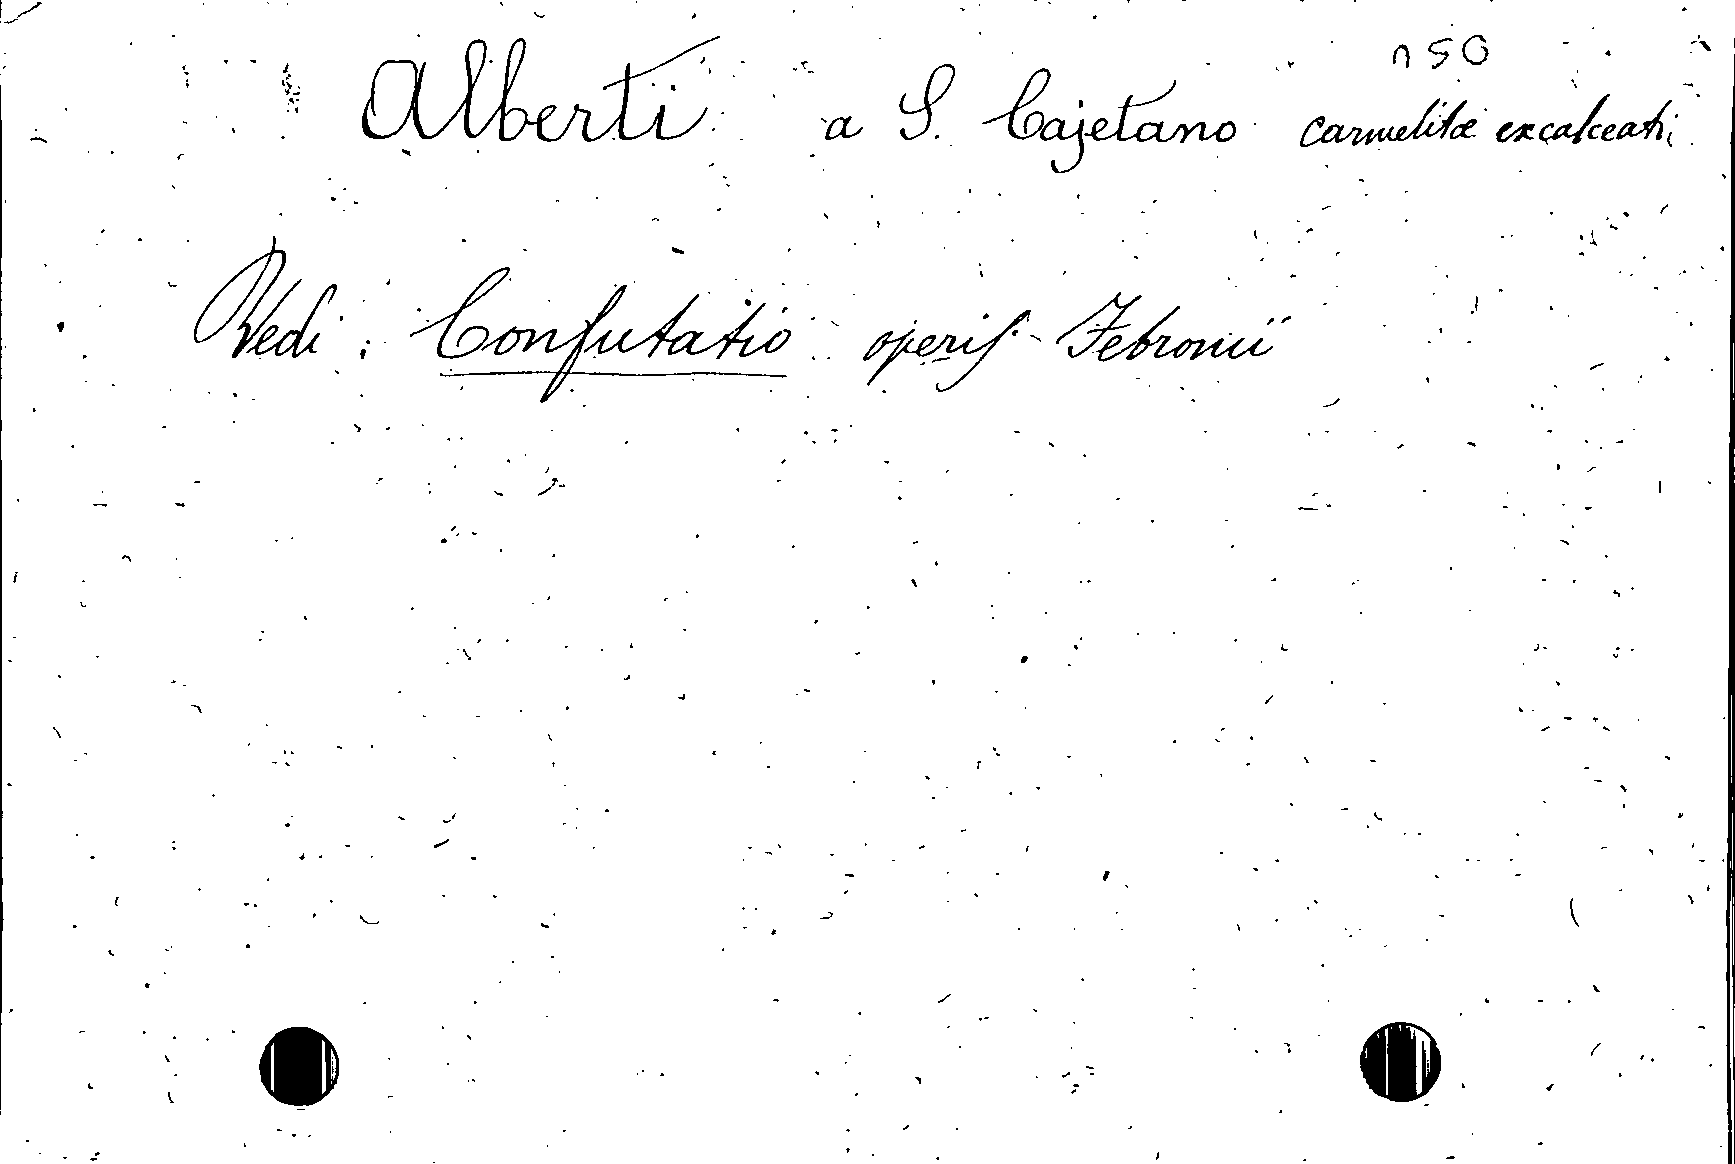 n 50
Alberti a S. Cajetano carmelitæ excalceati
Vedi: Confutatio operis Febronii